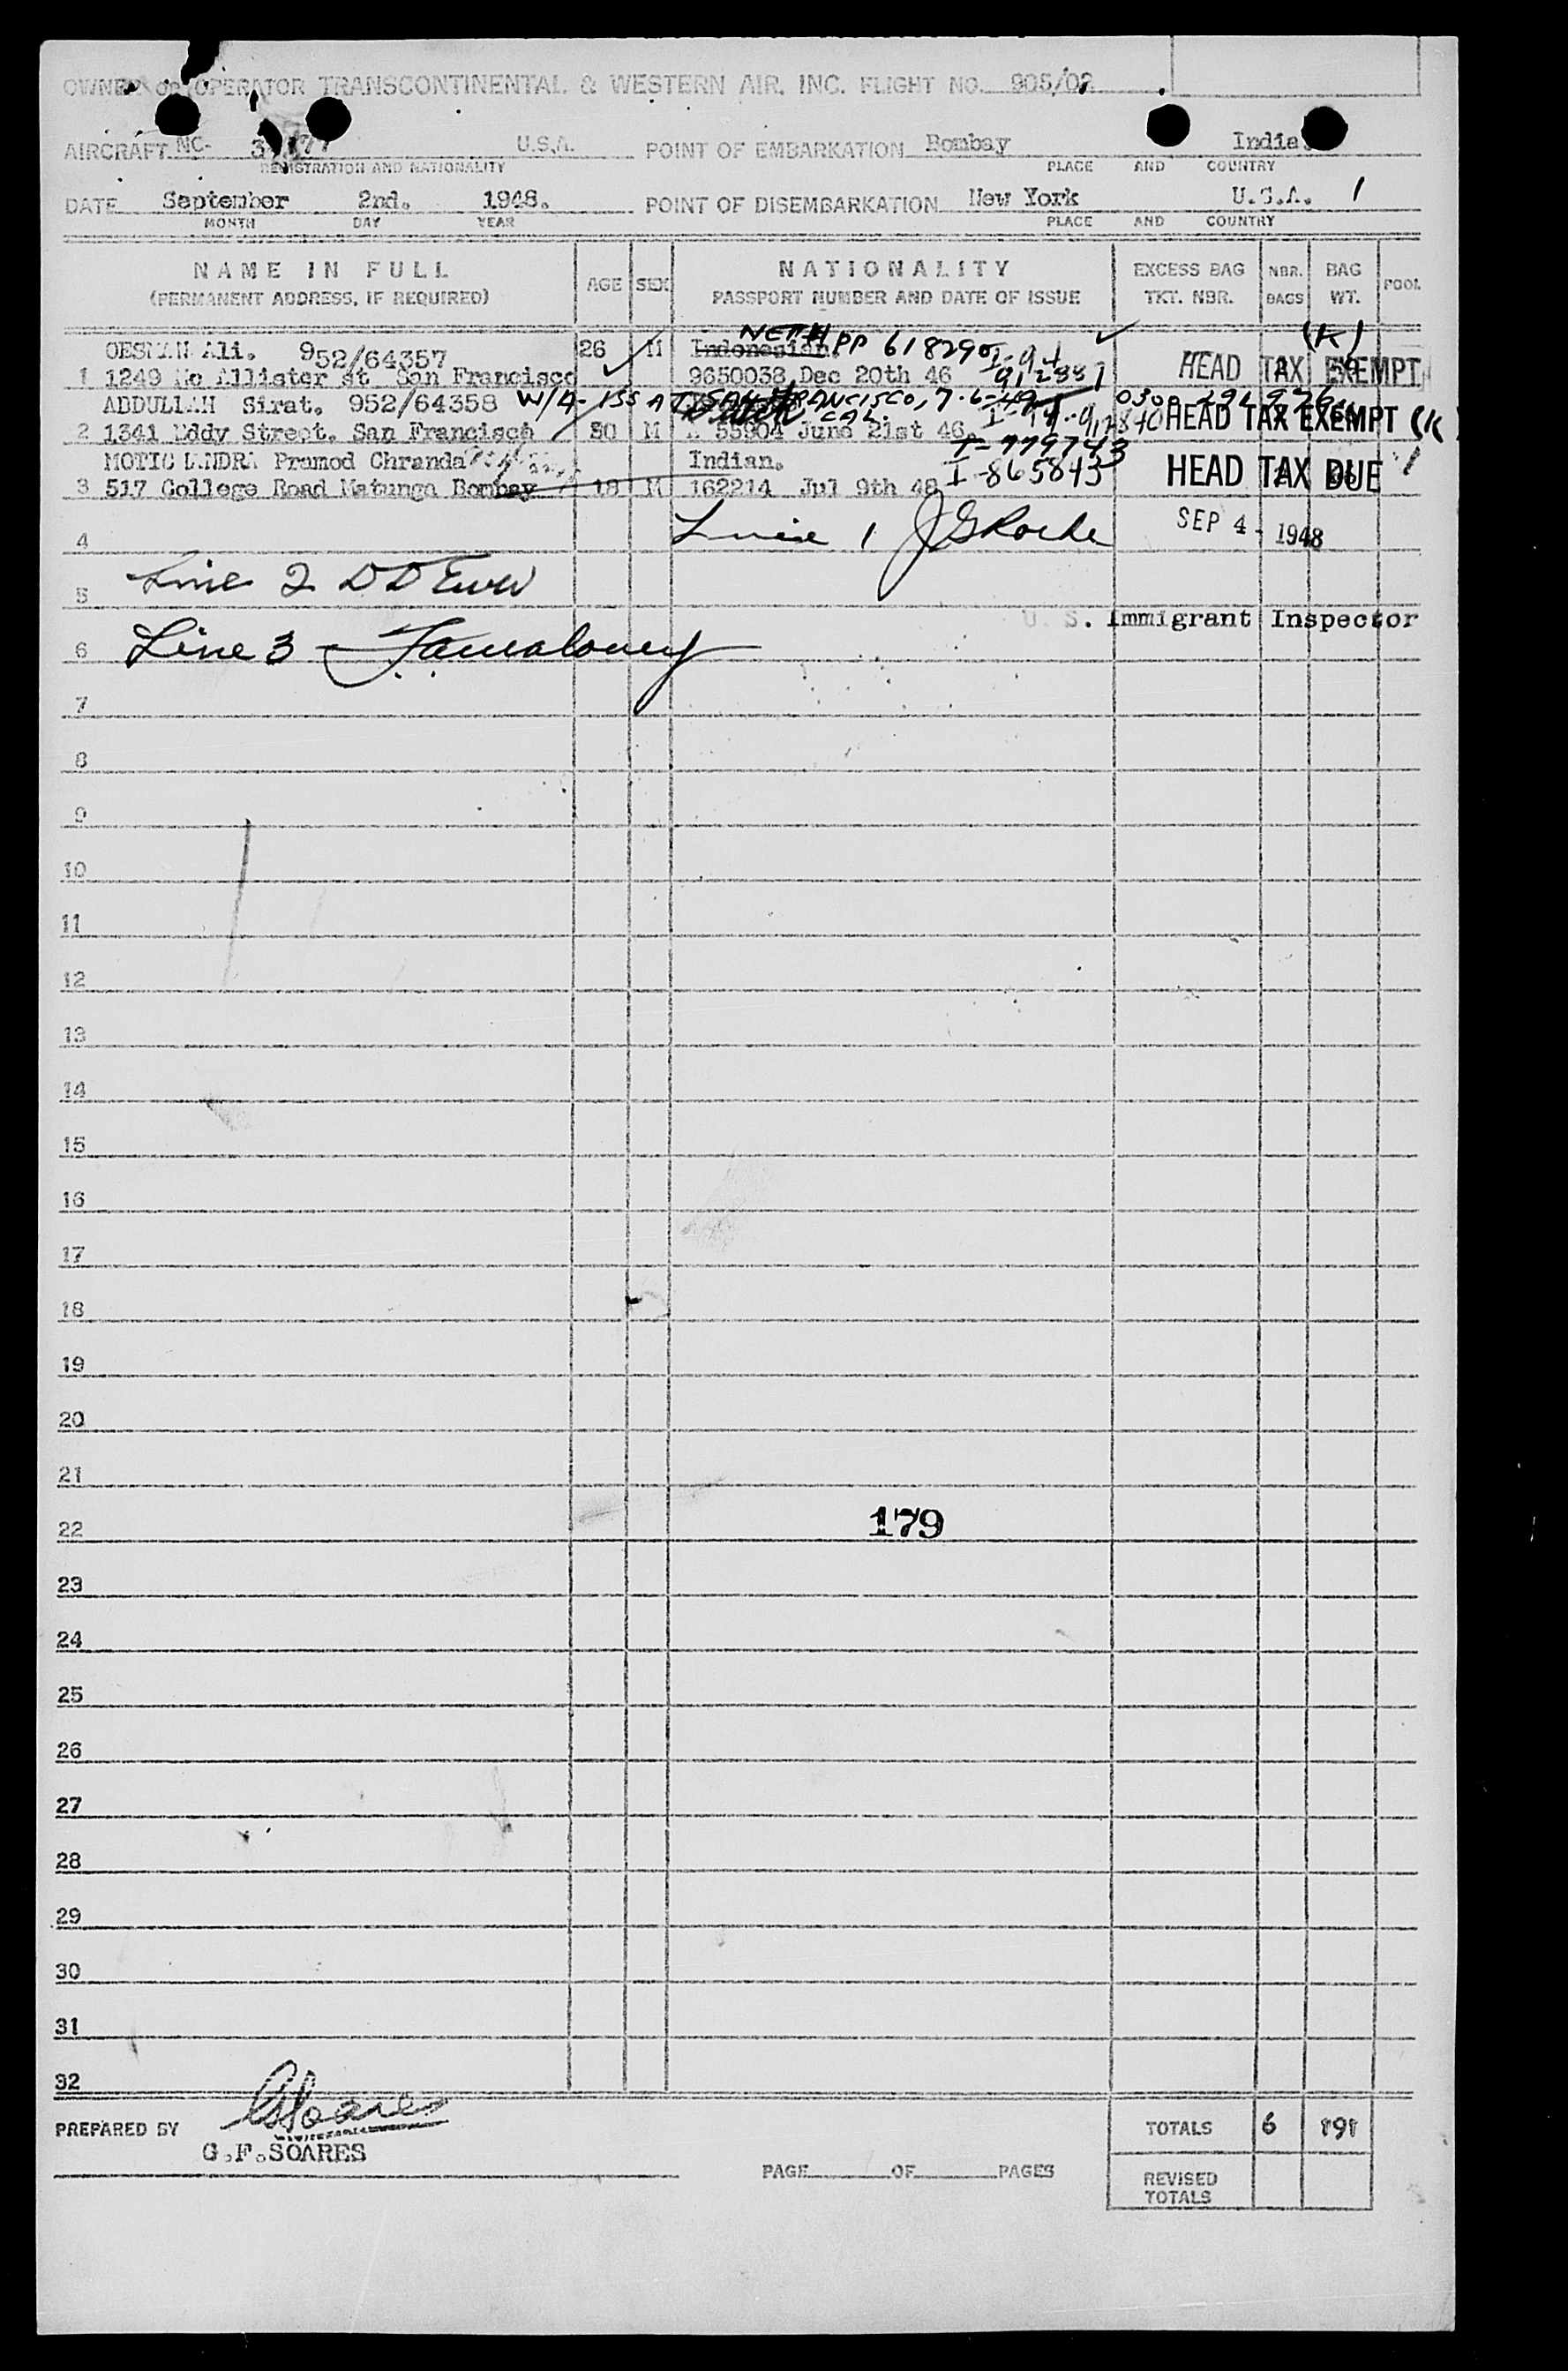 OWNER OR OPERATOR TRANSCONTINENTAL & WESTERN AIR, INC. FLIGHT NO. 905/02
AIRCRAFT NC- U.S.A. POINT OF EMBARKATION Bombay India.
REGISTRATION AND NATIONALITY PLACE AND COUNTRY
DATE September 2nd. 1948. POINT OF DISEMBARKATION New York U.S.A. 1
MONTH DAY YEAR PLACE AND COUNTRY
NAME IN FULL AGE SEX NATIONALITY EXCESS BAG NBR. BAG POOL
(PERMANENT ADDRESS, IF REQUIRED) PASSPORT NUMBER AND DATE OF ISSUE TKT. NBR. BAGS WT.
NETH PP 618290 (K)
OESMAN Ali. 952/64357 26 M Indonesian. I-94 HEAD TAX EXEMPT
1 1249 Mc Allister st San Francisco 9650038 Dec 20th 46 912881
ABDULLAH Sirat. 952/64358 W/A- ISS AT SAN FRANCISCO, 7-6-49 0300 291 976
Dutch CAL. HEAD TAX EXEMPT (K)
2 1341 Eddy Street. San Francisco 30 M 55904 June 21st 46.
I-779743
MOTICHANDRA Pramod Chranda Indian. I-865843 HEAD TAX DUE 1
3 517 College Road Matunga Bombay 18 M 162214 Jul 9th 48
4 Line 1 J G Roche SEP 4 - 1948
5 Line 2 D D
U. S. Immigrant Inspector
6 Line 3 -
7
8
9
10
11
12
13
14
15
16
17
18
19
20
21
22 179
23
24
25
26
27
28
29
30
31
32
PREPARED BY GFSoares TOTALS 6 191
G.F.SOARES
PAGE OF PAGES REVISED
TOTALS